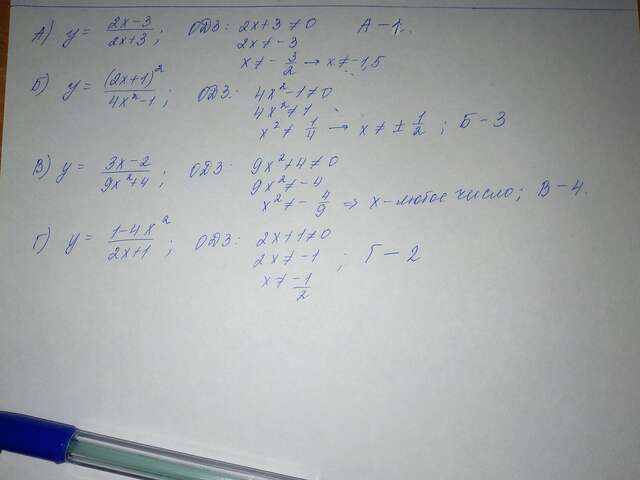 А) y = (2x-3)/(2x+3); ОДЗ: 2x+3≠0 А-1.
2x≠-3
x≠-3/2 → x≠-1,5
Б) y = (2x+1)²/(4x²-1); ОДЗ: 4x²-1≠0
4x²≠1
x²≠1/4 → x≠±1/2; Б-3
В) y = (3x-2)/(9x²+4); ОДЗ: 9x²+4≠0
9x²≠-4
x²≠-4/9 ⇒ x-любое число; В-4.
Г) y = (1-4x²)/(2x+1); ОДЗ: 2x+1≠0
2x≠-1 ; Г-2
x≠-1/2